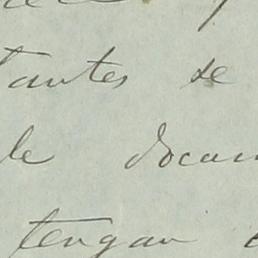 tantes se
le docum
tengan